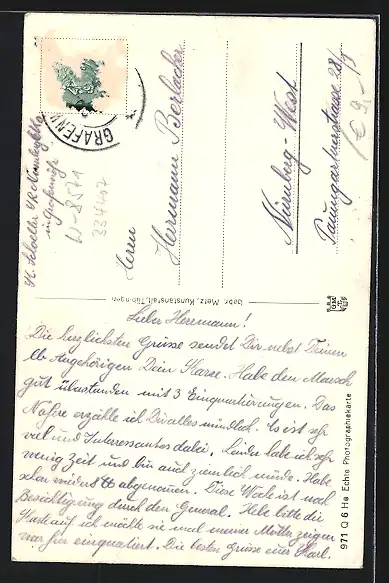 GRAFENW
Herrn
Herrmann Berlacher
Nürnberg-West
Paumgartnerstrasse 28/
€ 9,- B
W-8571
334447
Gebr. Metz, Kunstanstalt, Tübingen
971 Q 6 He Echte Photographiekarte
Lieber Herrmann!
Die herzlichsten Grüsse sendet Dir nebst Deinen
lb Angehörigen Dein Karl. Habe den Marsch
gut überstanden mit 3 Einquartierungen. Das
Nähere erzähle ich Dir alles mündlich. Es ist sehr
viel und Interessantes dabei. Leider habe ich sehr
wenig Zeit und bin auch ziemlich müde. Habe
schon wieder 8 ℔ abgenommen. Diese Woche ist noch
Besichtigung durch den General. Hebe bitte die
Karte auf ich möchte sie mal meiner Mutter zeigen
war hier einquartiert. Die besten Grüsse euer Karl.